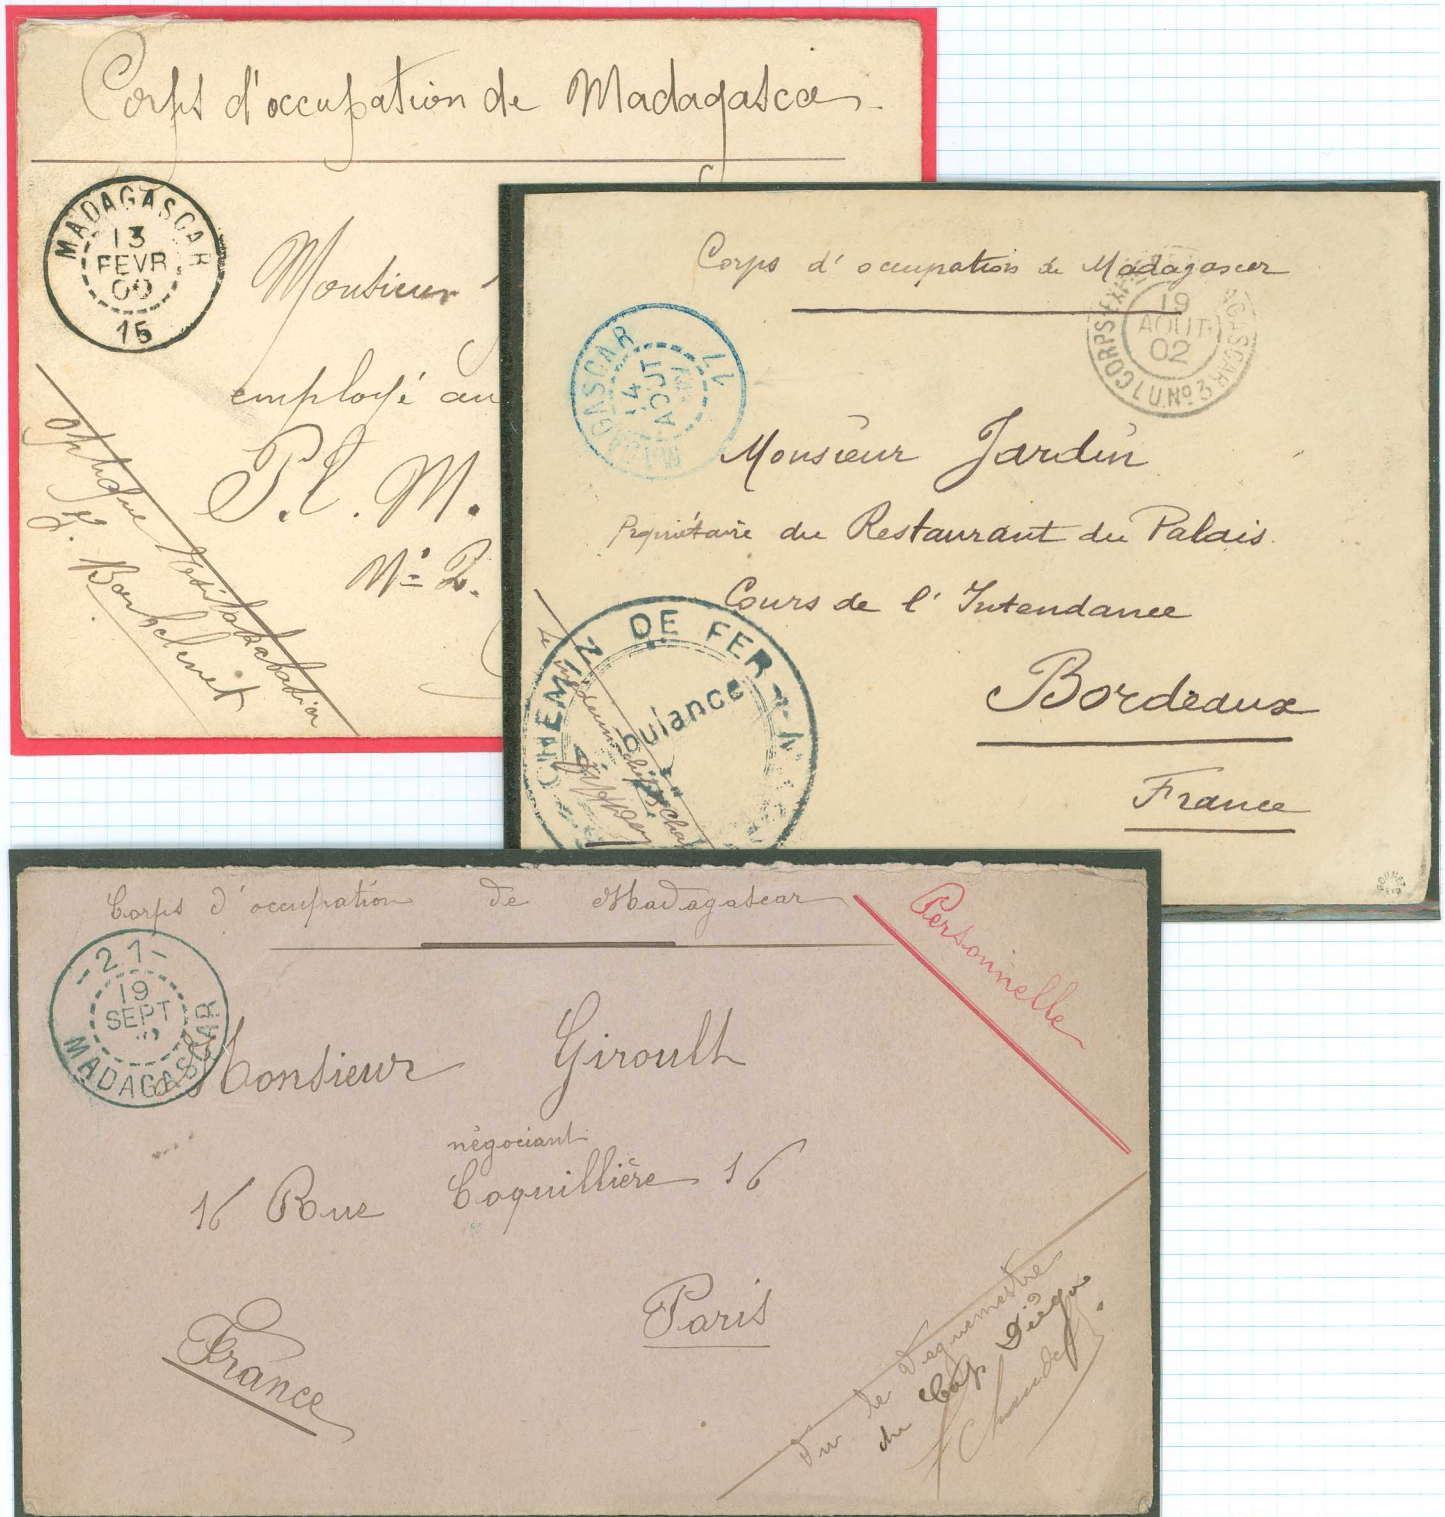 Corps d'occupation de Madagascar
MADAGASCAR
13
FEVR
00
15
Monsieur
employé au
P. L. M.
N° 2.
Corps d'occupation de Madagascar
MADAGASCAR
14
AOUT
17
19
AOUT
02
CORPS EXP
AGASCAR
Monsieur Jardin
Propriétaire du Restaurant du Palais
Cours de l'Intendance
Bordeaux
France
CHEMIN DE FER
bulance
Corps d'occupation de Madagascar
Personnelle
-21-
19
SEPT
MADAGASCAR
Monsieur Giroult
négociant
16 Rue Coquillière 16
Paris
France
Vu le Vaguemestre
du Cap Diégo